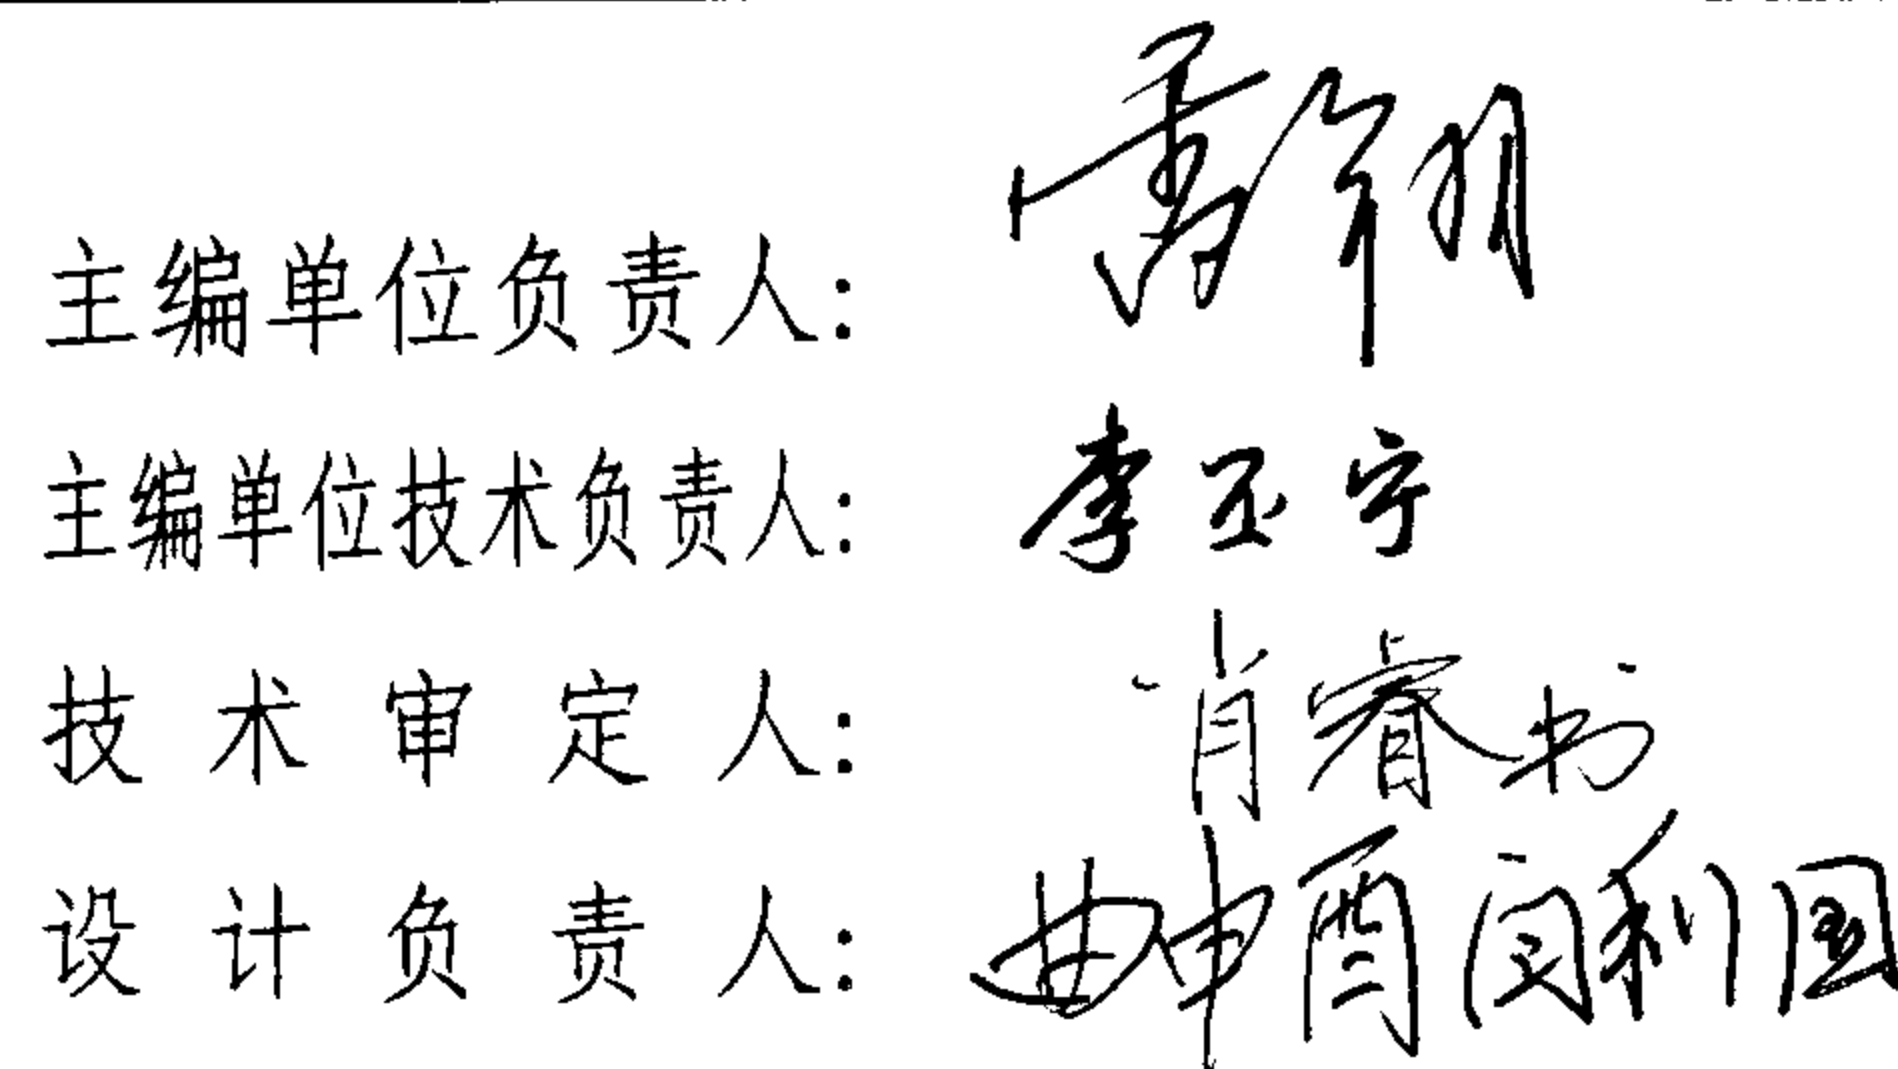 主编单位负责人:
主编单位技术负责人: 李玉宇
技术审定人: 肖睿书
设计负责人: 曲申酉 闫利国